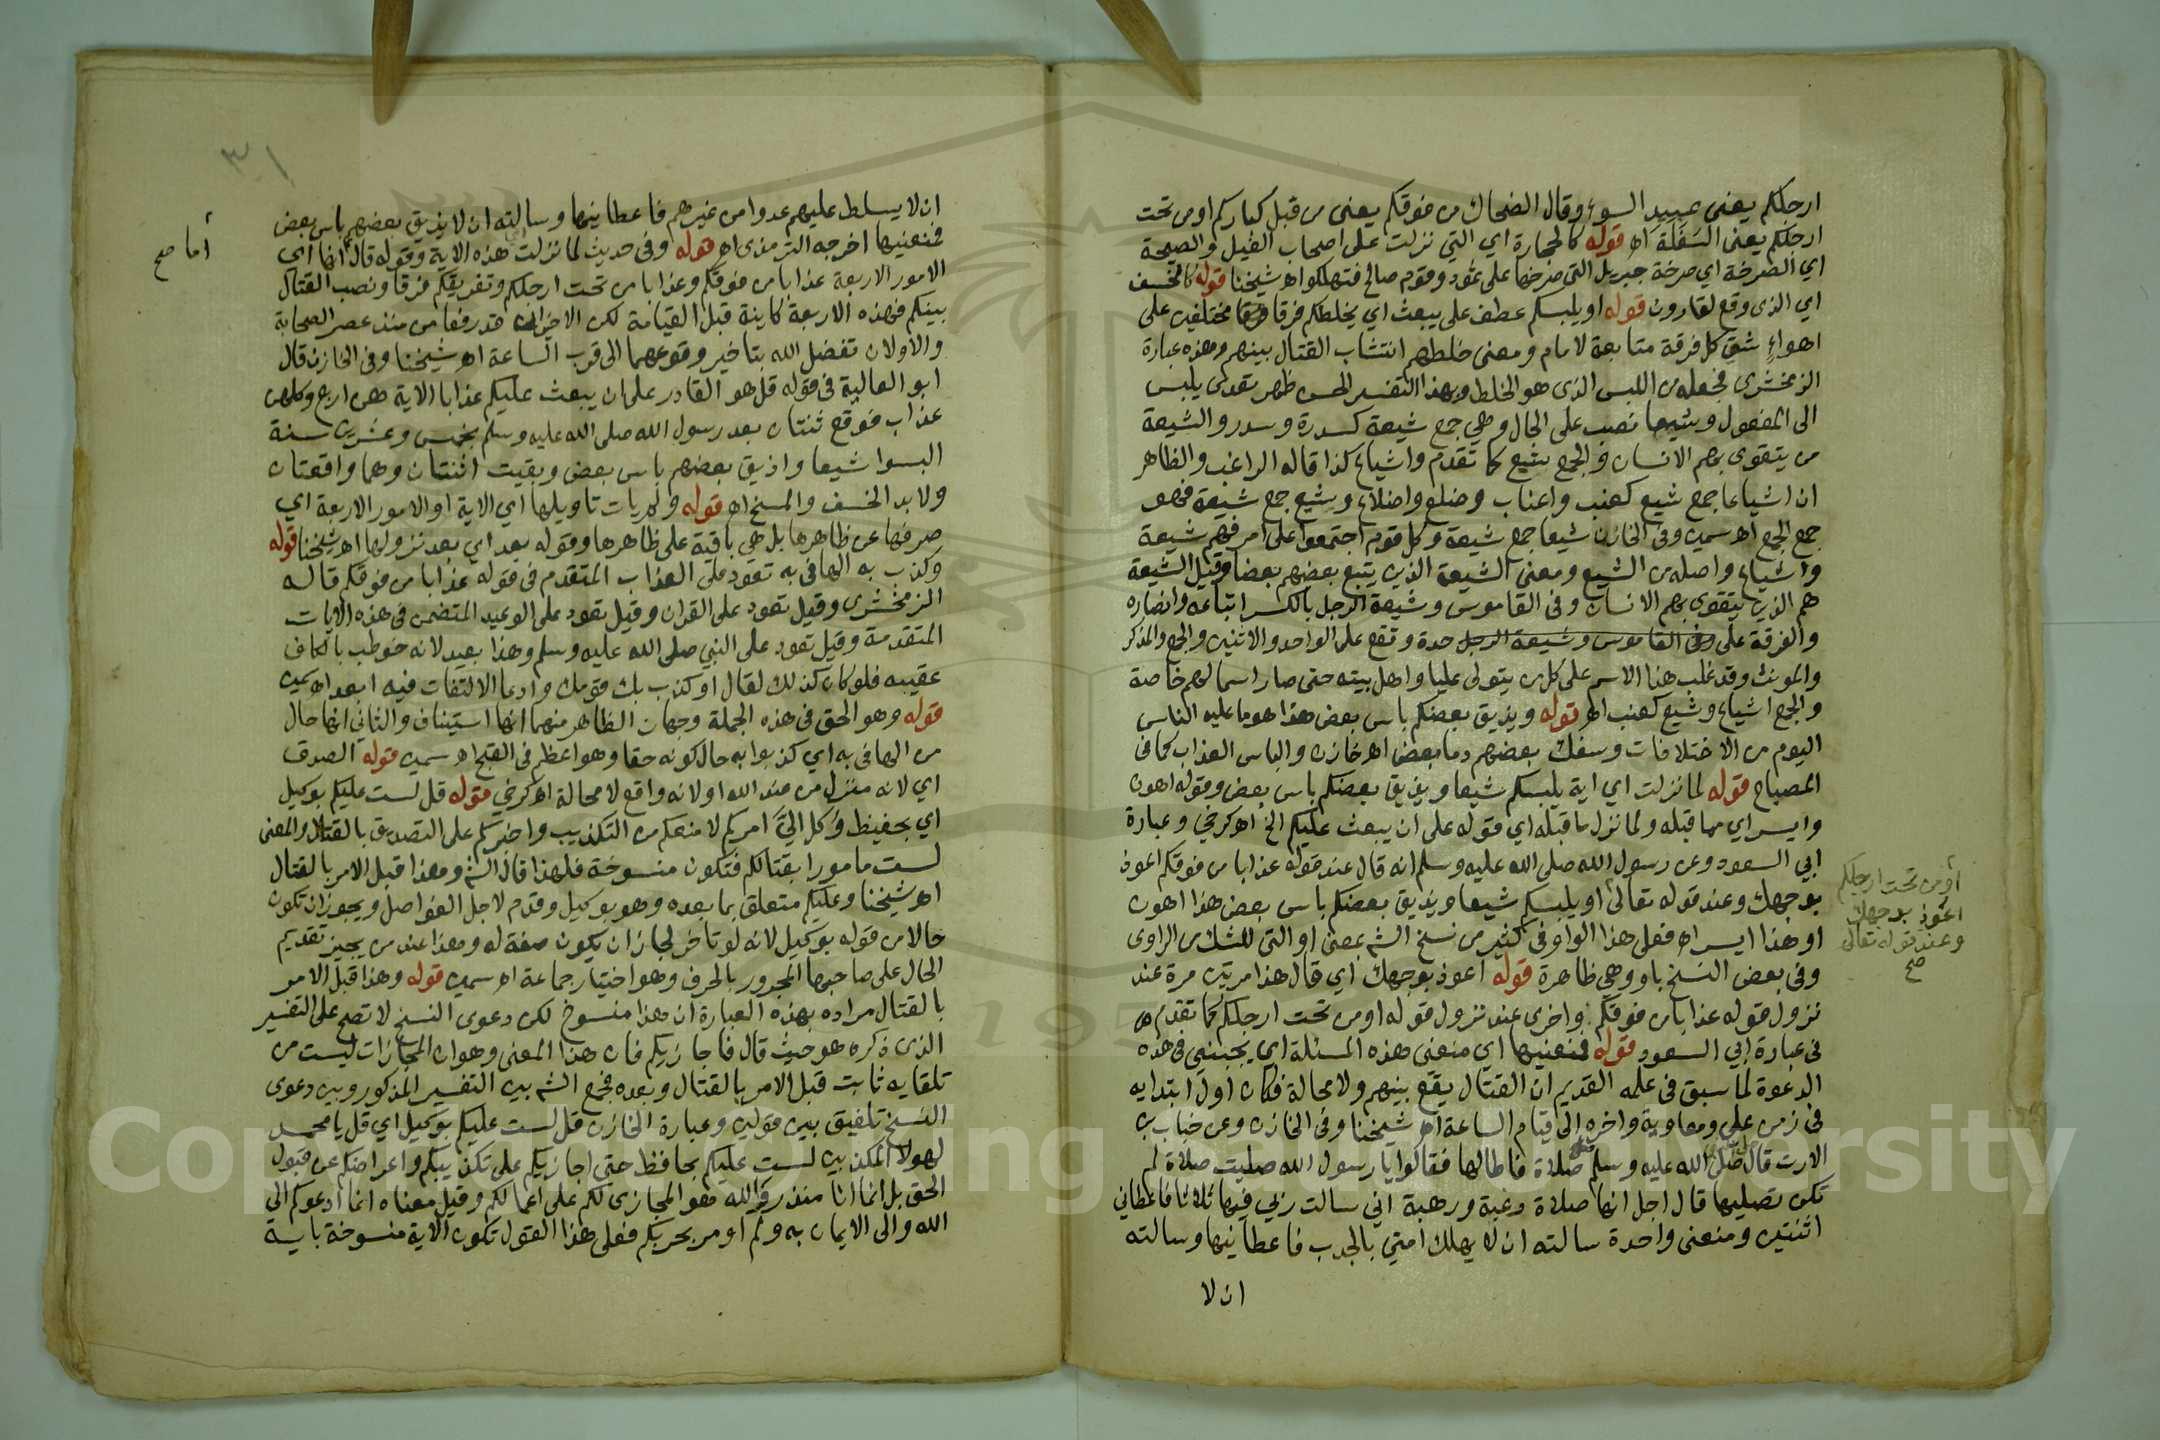 ارجلكم يعنى عبيد السوء وقال الضحاك من فوقكم يعنى من قبل كباركم او من تحت
ارجلكم يعنى السفلة اه قوله كالحجارة اي التي نزلت على اصحاب الفيل والصيحة
اي الصرخة اي صرخة جبريل التى صرخها على ثمود وقوم صالح فتهلكوا اه شيخنا قوله كالخسف
اي الذى وقع لقارون قوله او يلبسكم عطف على يبعث اي يخلطكم فرقا مختلفين على
اهواء شتى كل فرقة متابعة لامام ومعنى خلطهم انتشاب القتال بينهم وهذه عبارة
الزمخشرى فجعله من اللبس الذى هو الخلط وبهذا التفسير الحسن ظهر تعدى يلبس
الى المفعول وشيعا نصب على الحال وهي جمع شيعة كسدرة وسدر والشيعة
من يتقوى بهم الانسان والجمع شيع كما تقدم واشياع كذا قاله الراغب والظاهر
ان اشياعا جمع شيع كعنب واعناب وضلع واضلاع وشيع جمع شيعة فهو
جمع الجمع اه سمين وفى الخازن شيعا جمع شيعة وكل قوم اجتمعوا على امر فهم شيعة
واشياع واصله من الشيع ومعنى الشيعة الذين يتبع بعضهم بعضا وقيل الشيعة
هم الذين يتقوى بهم الانسان وفى القاموس وشيعة الرجل بالكسر اتباعه وانصاره
والفرقة على وفى القاموس وشيعة الرجل حدة وتقع على الواحد والاثنين والجمع والمذكر
والمونث وقد غلب هذا الاسم على كل من يتولى عليا واهل بيته حتى صار اسما لهم خاصة
والجمع اشياع وشيع كعنب اه قوله ويذيق بعضكم باس بعض هذا هو ما عليه الناس
اليوم من الاختلافات وسفك بعضهم دما بعض اه خازن والباس العذاب كما فى
المصباح قوله لما نزلت اي اية يلبسكم شيعا ويذيق بعضكم باس بعض وقوله اهون
وايسر اي مما قبله ولما نزل ما قبله اي قوله على ان يبعث عليكم الخ اه كرخي وعبارة
ابي السعود وعن رسول الله صلى الله عليه وسلم انه قال عند قوله عذابا من فوقكم اعوذ
بوجهك وعند قوله تعالى او يلبسكم شيعا ويذيق بعضكم باس بعض هذا اهون
او هذا ايسر اه فعلى هذا الواو فى كثير من نسخ الشم بمعنى او التى للشك من الراوى
وفى بعض النسخ باو وهي ظاهرة قوله اعوذ بوجهك اي قال هذا مرتين مرة عند
نزول قوله عذابا من فوقكم واخرى عند نزول قوله او من تحت ارجلكم كما تقدم
فى عبارة ابي السعود قوله فمنعنيها اي منعنى هذه المسئلة اي يجبنى فى هذه
الدعوة لما سبق فى علمه القديم ان القتال يقع بينهم ولا محالة فكان اول ابتدايه
فى زمن على ومعاوية واخره الى قيام الساعة اه شيخنا وفى الخازن وعن خباب بن
الارت قال صلى الله عليه وسلم صلاة فاطالها فقالوا يا رسول الله صليت صلاة لم
تكن تصليها قال اجل انها صلاة رغبة ورهبة اني سالت ربي فيها ثلاثا فاعطاني
اثنتين ومنعنى واحدة سالته ان لا يهلك امتي بالجدب فاعطانيها وسالته
ان لا
او من تحت ارجلكم
اعوذ بوجهك
وعند قوله تعالى
صح
٣١
ان لا يسلط عليهم عدوا من غيرهم فاعطانيها وسالته ان لا يذيق بعضهم باس بعض
فمنعنيها اخرجه الترمذى اه قوله وفى حديث لما نزلت هذه الاية وقوله قال انها اي
الامور الاربعة عذابا من فوقكم وعذابا من تحت ارجلكم وتفريقكم فرقا ونصب القتال
بينكم فهذه الاربعة كاينة قبل القيامة لكن الاخيران قد وقعا من منذ عصر الصحابة
والاولان تفضل الله بتاخير وقوعهما الى قرب الساعة اه شيخنا وفى الخازن قال
ابو العالية فى قوله قل هو القادر على ان يبعث عليكم عذابا الاية هن اربع وكلهن
عذاب فوقع ثنتان بعد رسول الله صلى الله عليه وسلم بخمس وعشرين سنة
البسوا شيعا واذيق بعضهم باس بعض وبقيت اثنتان وهما واقعتان
ولا بد الخسف والمسخ اه قوله ولم يات تاويلها اي الاية او الامور الاربعة اي
صرفها عن ظاهرها بل هي باقية على ظاهرها وقوله بعد اي بعد نزولها اه شيخنا قوله
وكذب به الها فى به تعود على العذاب المتقدم فى قوله عذابا من فوقكم قاله
الزمخشرى وقيل تعود على القران وقيل تعود على الوعيد المتضمن فى هذه الايات
المتقدمة وقيل تعود على النبي صلى الله عليه وسلم وهذا بعيد لانه خوطب بالكاف
عقيبه فلو كان كذلك لقال او كذب بك قومك وادعا الالتفات فيه ابعد اه سمين
قوله وهو الحق فى هذه الجملة وجهان الظاهر منهما انها استيناف والثاني انها حال
من الها فى به اي كذبوا به حال كونه حقا وهو اعظم فى القبح اه سمين قوله الصدق
اي لانه منزل من عند الله او لانه واقع لا محالة اه كرخي قوله قل لست عليكم بوكيل
اي بحفيظ وكل الى امركم لا منعكم من التكذيب واخبركم على التصديق بالقتال والمعنى
لست مامورا بقتالكم فتكون منسوخة فلهذا قال الشم وهذا قبل الامر بالقتال
اه شيخنا وعليكم متعلق بما بعده وهو بوكيل وقدم لاجل الفواصل ويجوز ان تكون
حالا من قوله بوكيل لانه لو تاخر لجاز ان يكون صفة له وهذا عند من يجيز تقديم
الحال على صاحبها المجرور بالحرف وهو اختيار جماعة اه سمين قوله وهذا قبل الامر
بالقتال مراده بهذه العبارة ان هذا منسوخ لكن دعوى النسخ لا تصح على التفسير
الذى ذكره هو حيث قال فاجازيكم فان هذا المعنى وهو ان المجازات ليست من
تلقايه ثابت قبل الامر بالقتال وبعده فجمع الشم بين التفسير المذكور وبين دعوى
النسخ تلفيق بين قولين وعبارة الخازن قل لست عليكم بوكيل اي قل يا محمد
لهولا المكذبين لست عليكم بحافظ حتى اجازيكم على تكذيبكم واعراضكم عن قبول
الحق بل انما انا منذر والله هو المجازى لكم على اعمالكم وقيل معناه انما ادعوكم الى
الله والى الايمان به ولم اومر بحربكم فعلى هذا القول تكون الاية منسوخة باية
اما صح